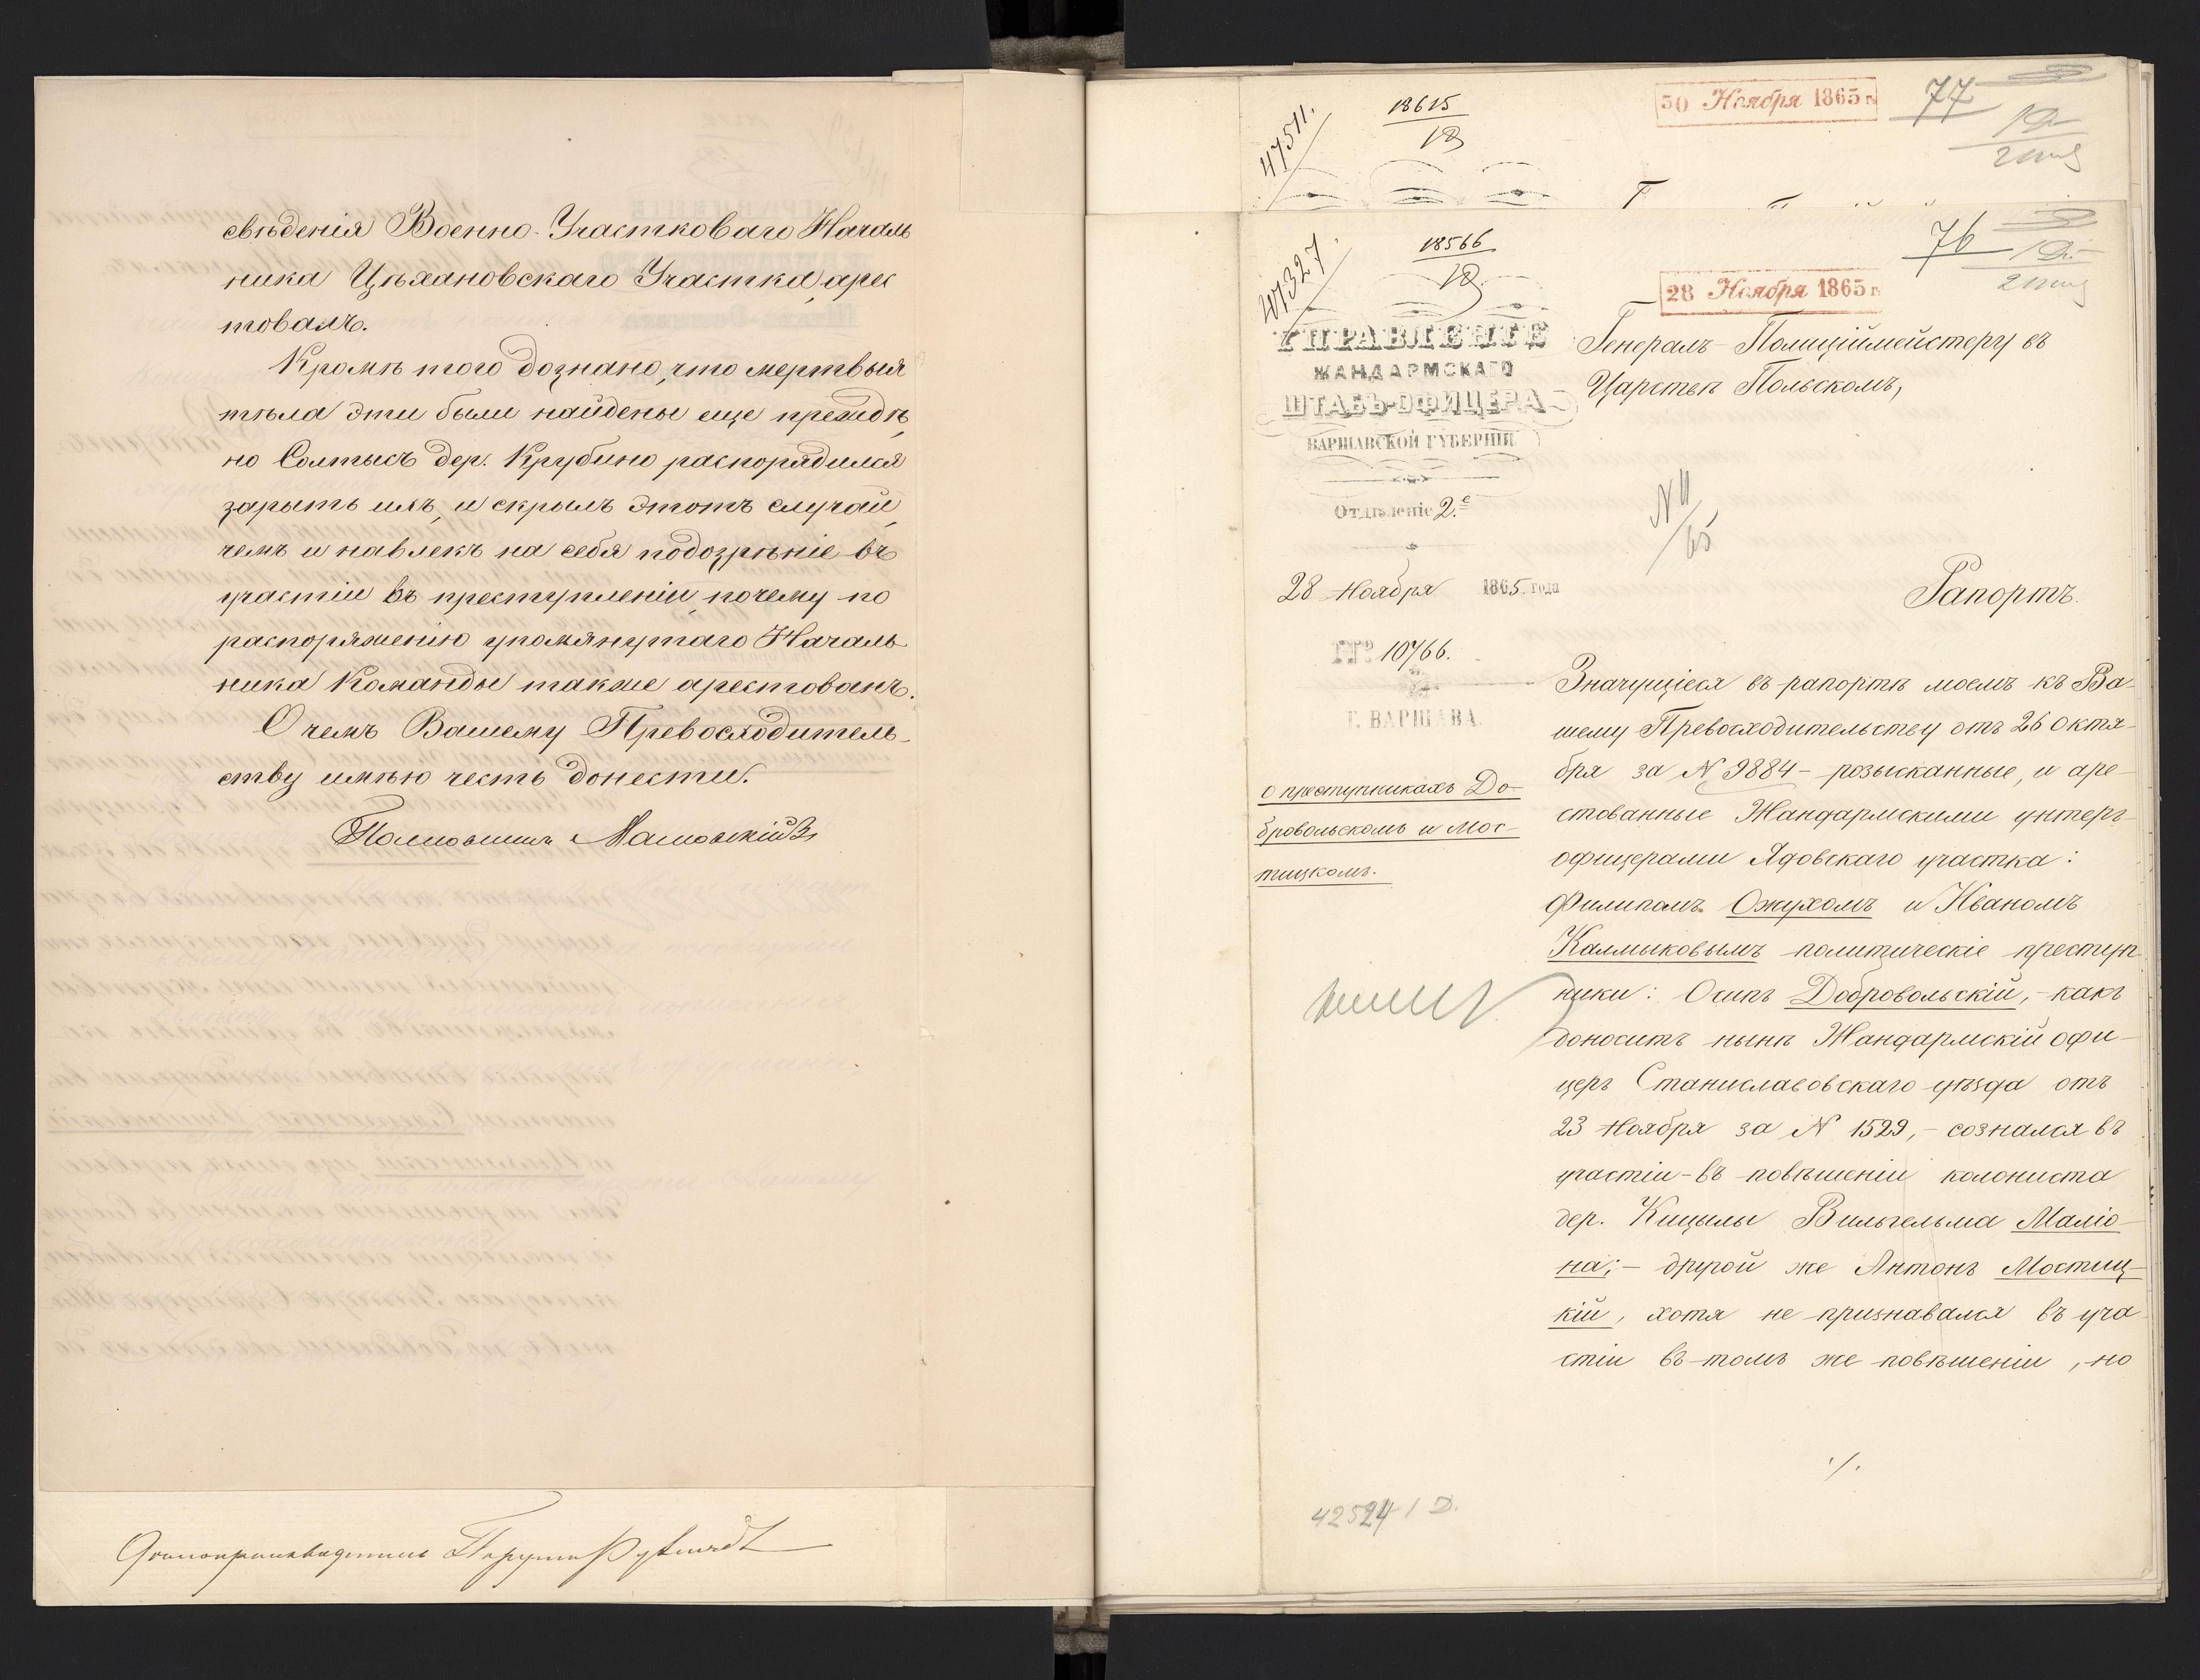 свѣденія Военно-Участковаго Началь
ника Цѣхановскаго Участка, арес
товалъ.
Кромѣ того дознано, что мертвыя
тѣла эти были найдены еще прежде,
но Солтысъ дер. Крубино распорядился
зарыть ихъ, и скрылъ этотъ случай,
чемъ и навлекъ на себя подозрѣніе въ
участіи въ преступленіи, почему по
распоряженію упомянутаго Началь-
ника Команды также арестованъ.
О чемъ Вашему Превосходитель-
ству имѣю честь донести.
Полковникъ
Дѣлопроизводитель
47511.
18615
30 Ноября 1865 г.
77
47327.
18566
76
28 Ноября 1865 г.
УПРАВЛЕНІЕ
ЖАНДАРМСКАГО
ШТАБЪ-ОФИЦЕРА
ВАРШАВСКОЙ ГУБЕРНІИ
Отдѣленіе 2.е
28 Ноября 1865 года
№ 10766.
Г. ВАРШАВА.
о преступникахъ До-
бровольскомъ и Мос-
тицкомъ.
Генералъ-Полиціймейстеру въ
Царствѣ Польскомъ,
N 11/65
Рапортъ.
Значущіеся въ рапортѣ моемъ къ Ва-
шему Превосходительству отъ 26 Октя-
бря за N 9884 - розысканные, и аре-
стованные Жандармскими унтеръ-
офицерами Ядовскаго участка:
Филипомъ Ожухомъ и Иваномъ
Калмыковымъ политическіе преступ-
ники: Осипъ Добровольскій, - какъ
доноситъ нынѣ Жандармскій офи-
церъ Станиславовскаго уѣзда отъ
23 Ноября за N 1529, - сознался въ
участіи - въ повѣшеніи колониста
дер. Кицылы Вильгельма Маліо-
на; - другой же Антонъ Мостиц-
кій, хотя не признавался въ уча-
стіи въ томъ же повѣшеніи, но
./.
42524 1 D.